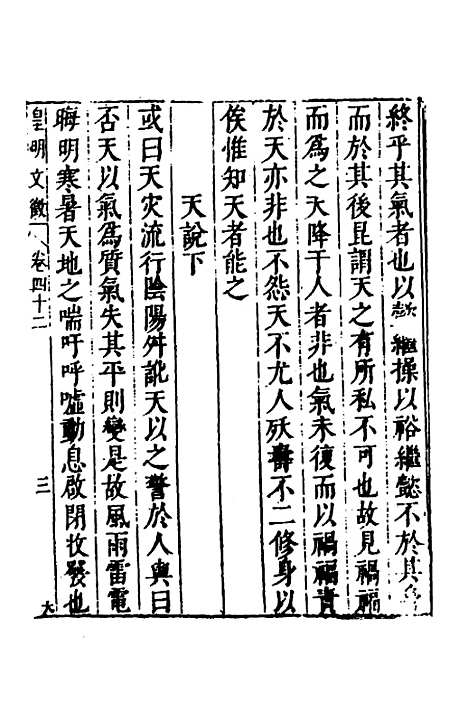 終乎其氣者也以㱆繼操以裕繼懿不於其身
而於其後昆謂天之有所私不可也故見禍福
而爲之天降于人者非也氣未復而以禍福責
於天亦非也不怨天不尤人殀壽不二修身以
俟惟知天者能之
天說下
或曰天灾流行陰陽舛訛天以之警於人與曰
否天以氣爲質氣失其平則變是故風雨雷電
晦明寒暑天地之喘吁呼噓動息啟閉收發也
皇明文徵 卷四十二 三 大